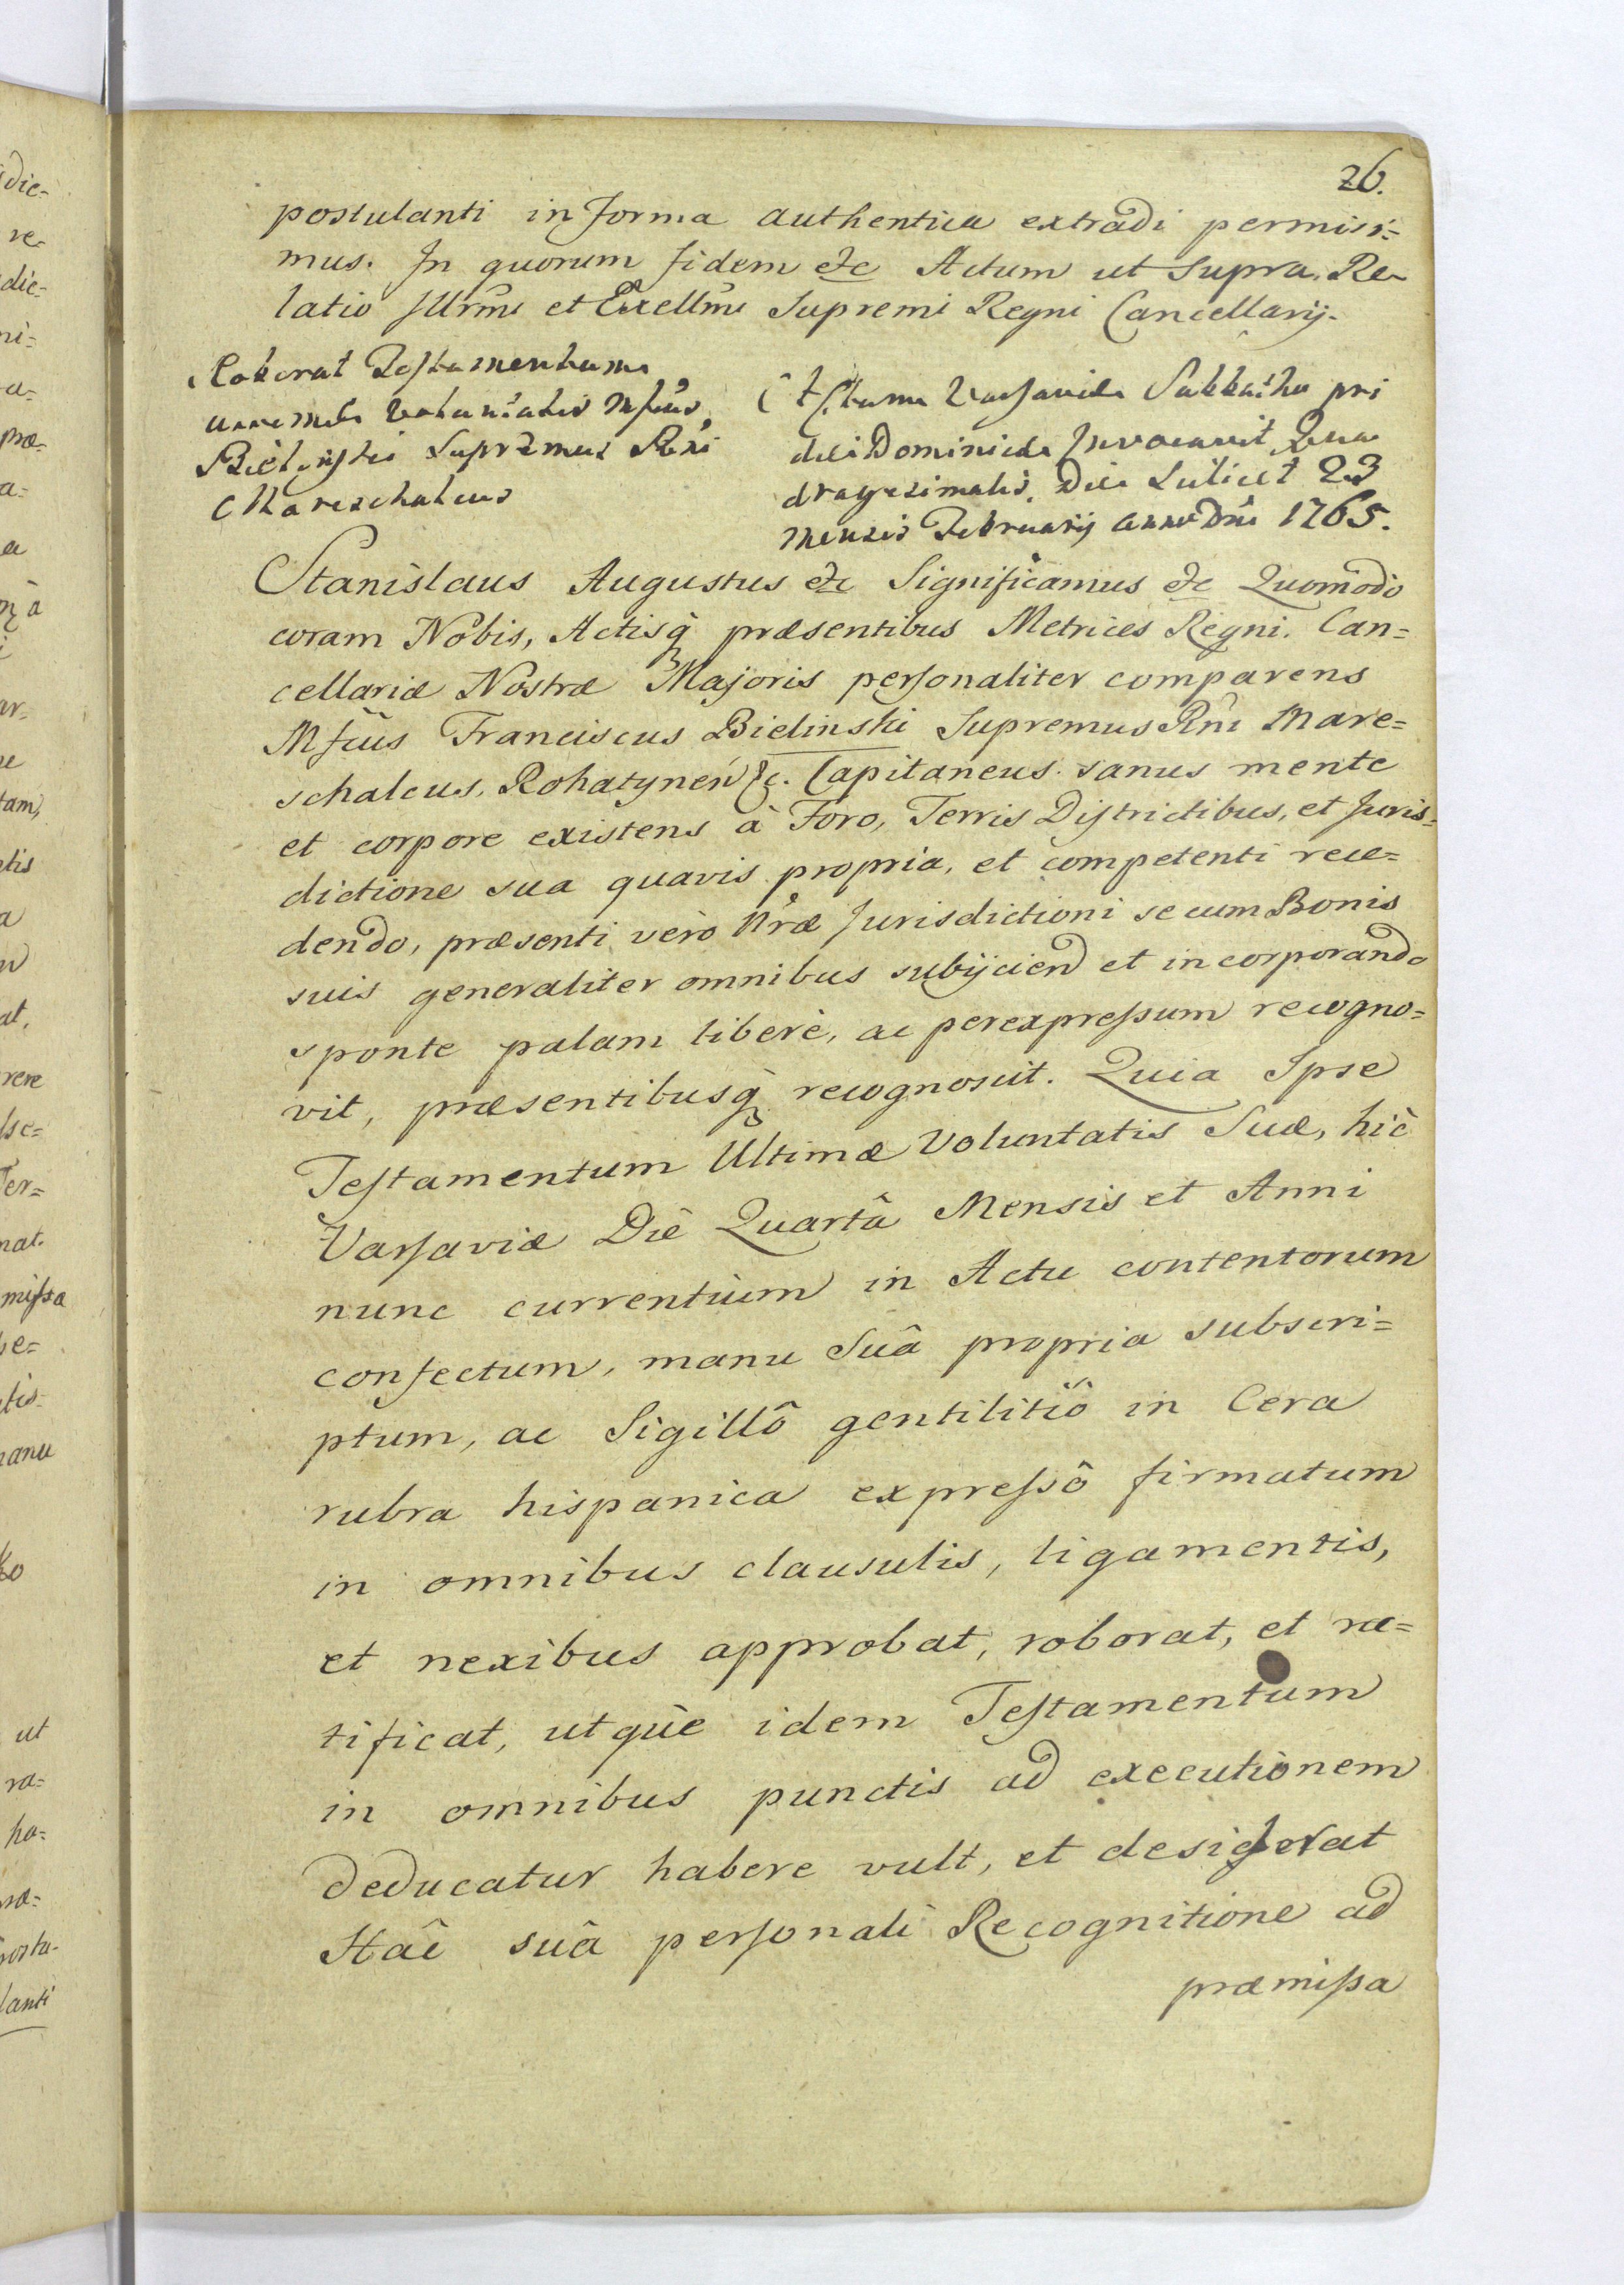 26.
postulanti in forma authentica extradi permisi=
mus. In quorum fidem etc Actum ut supra. Re-
latio Illrmi et Excellmi Supremi Regni Cancellarij.
Roborat Testamentum
Voluntatis Mfcus
Bielinski Supremus Rni
Mareschalcus
Actum Varsaviæ Sabbatho pri
die Dominicæ Invocavit Qua
dragesimalis. Die Scilicet 23
mensis Februarij Anno Dni 1765.
Stanislaus Augustus etc Significamus etc Quomodo
coram Nobis, Actisq præsentibus Metrices Regni. Can=
cellariæ Nostræ Majoris personaliter comparens
Mfcus Franciscus Bielinski Supremus Rni Mare=
schalcus, Rohatynen &c. Capitaneus. sanus mente
et corpore existens à Foro, Terris Districtibus, et Juris=
dictione sua quavis propria, et competenti rece=
dendo, præsenti verò Nræ Jurisdictioni se cum Bonis
suis generaliter omnibus subijciend et incorporando
sponte palam liberè, ac perexpressum recogno=
vit, præsentibusq recognoscit. Quia Ipse
Testamentum Ultimæ Voluntatis Suæ, hic
Varsaviæ Die Quartâ Mensis et Anni
nunc currentium in Actu contentorum
confectum, manu Suâ propria subscri=
ptum, ac Sigillô gentilitiô in Cera
rubra hispanica expressô firmatum
in omnibus clausulis, ligamentis,
et nexibus approbat, roborat, et ra=
tificat, utque idem Testamentum
in omnibus punctis ad executionem
deducatur habere vult, et desiderat
Hac suâ personali Recognitione ad
præmissa